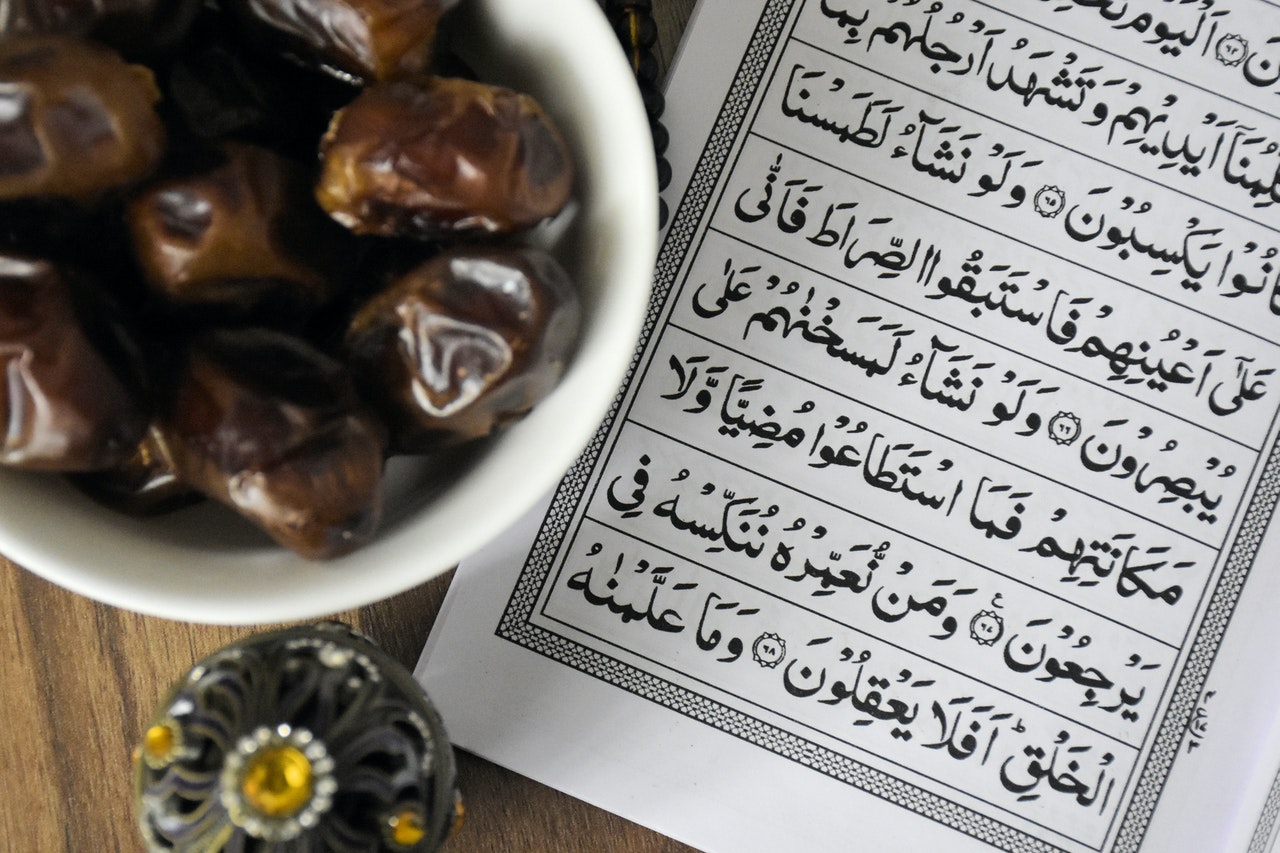 ن ۝٦٣ اَلْيَوْمَ نَخْتِ
لِّمُنَآ اَيْدِيْهِمْ وَتَشْهَدُ اَرْجُلُهُمْ بِمَا
كَانُوْا يَكْسِبُوْنَ ۝٦٥ وَلَوْ نَشَآءُ لَطَمَسْنَا
عَلٰٓى اَعْيُنِهِمْ فَاسْتَبَقُوا الصِّرَاطَ فَاَنّٰى
يُبْصِرُوْنَ ۝٦٦ وَلَوْ نَشَآءُ لَمَسَخْنٰهُمْ عَلٰى
مَكَانَتِهِمْ فَمَا اسْتَطَاعُوْا مُضِيًّا وَّلَا
يَرْجِعُوْنَ ۝٦٤ ع وَمَنْ نُّعَمِّرْهُ نُنَكِّسْهُ فِى
الْخَلْقِ ؕ اَفَلَا يَعْقِلُوْنَ ۝٦٨ وَمَا عَلَّمْنٰهُ